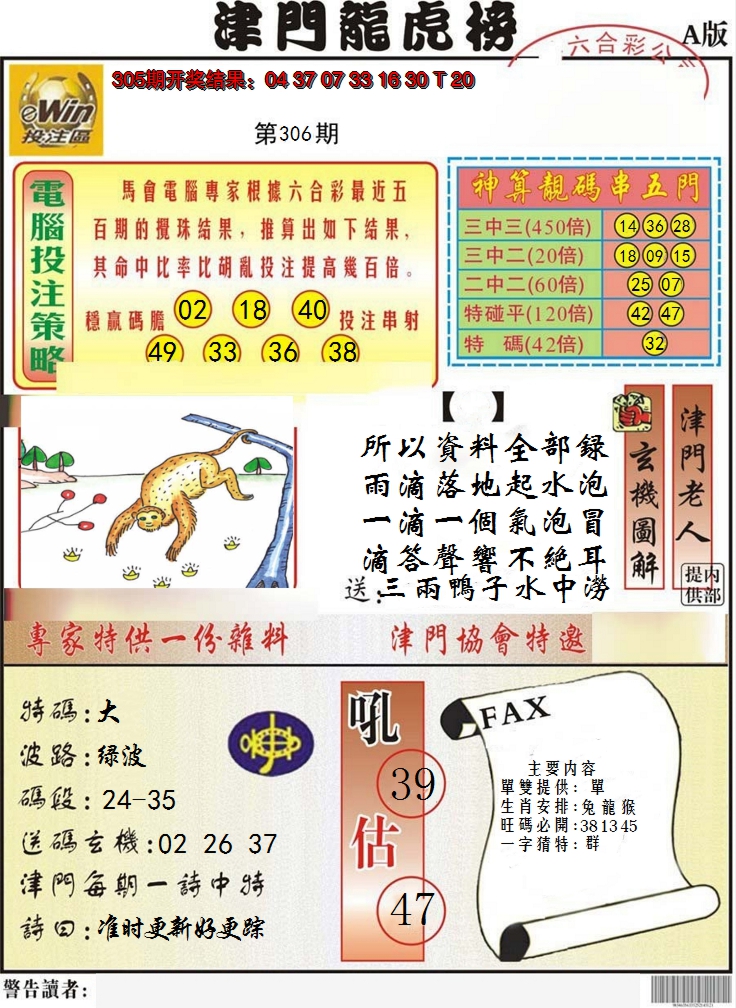 津門龍虎榜
六合彩公
A版
eWin
投注區
305期开奖结果：04 37 07 33 16 30 T 20
第306期
電腦投注策略
馬會電腦專家根據六合彩最近五
百期的攪珠结果，推算出如下结果，
其命中比率比胡亂投注提高幾百倍。
穩赢碼膽 02 18 40 投注串射
49 33 36 38
神算靚碼串五門
三中三(450倍) 14 36 28
三中二(20倍) 18 09 15
二中二(60倍) 25 07
特碰平(120倍) 42 47
特 碼(42倍) 32
【 】
所以資料全部録
雨滴落地起水泡
一滴一個氣泡冒
滴答聲響不絶耳
送：三兩鴨子水中澇
玄機圖解
津門老人
内部提供
專家特供一份雜料
津門協會特邀
特碼：大
波路：绿波
碼段：24-35
送碼玄機:02 26 37
津門每期一詩中特
詩曰：准时更新好更踪
吼
39
估
47
FAX
主要内容
單雙提供：單
生肖安排:兔龍猴
旺碼必開:38 13 45
一字猜特：群
警告讀者：